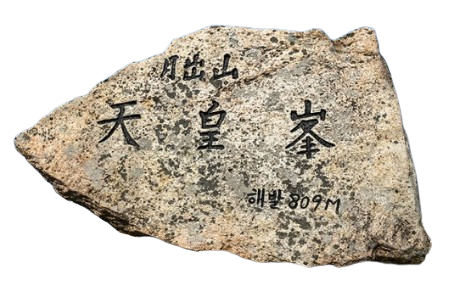 月出山
天皇峯
해발 809M